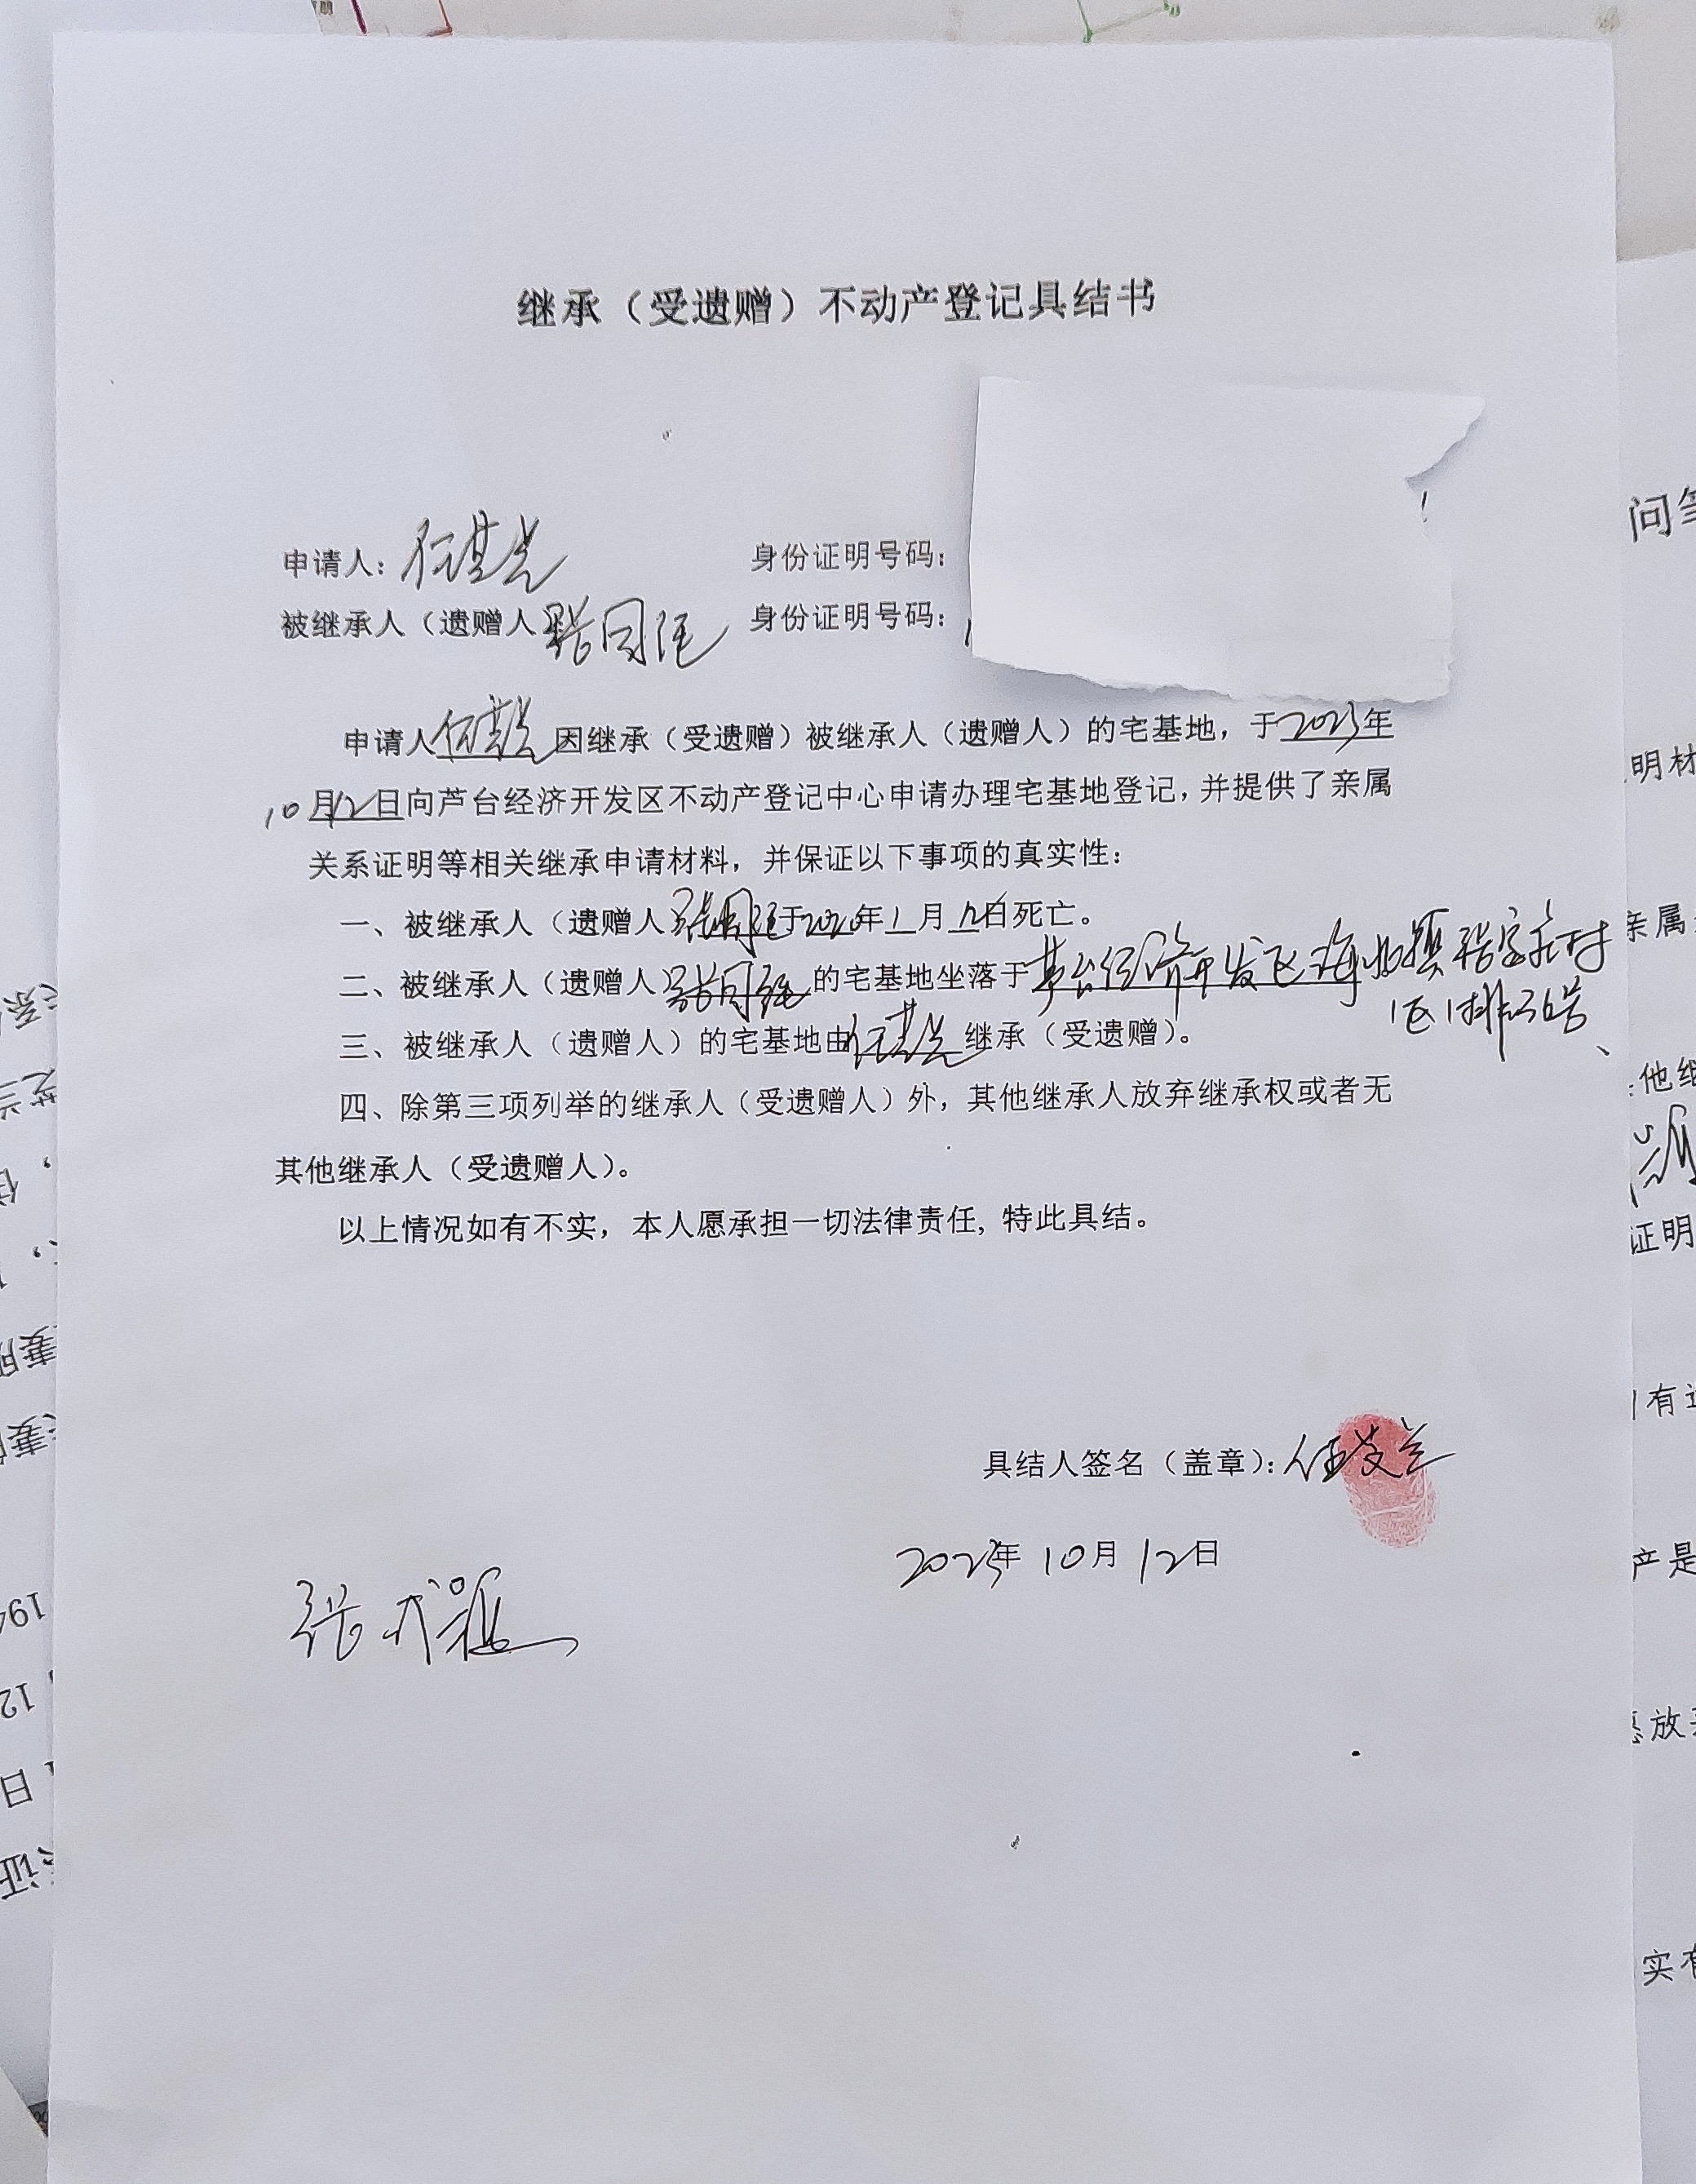 继承（受遗赠）不动产登记具结书
申请人：任芝兰 身份证明号码：
被继承人（遗赠人）张同 身份证明号码：
申请人任芝兰因继承（受遗赠）被继承人（遗赠人）的宅基地，于2023年
10月12日向芦台经济开发区不动产登记中心申请办理宅基地登记，并提供了亲属
关系证明等相关继承申请材料，并保证以下事项的真实性：
一、被继承人（遗赠人）张同于2020年1月12日死亡。
二、被继承人（遗赠人）张同的宅基地坐落于芦台经济开发区海北镇张家村
1区1排 号、
三、被继承人（遗赠人）的宅基地由任芝兰继承（受遗赠）。
四、除第三项列举的继承人（受遗赠人）外，其他继承人放弃继承权或者无
其他继承人（受遗赠人）。
以上情况如有不实，本人愿承担一切法律责任，特此具结。
具结人签名（盖章）：任芝兰
2023年10月12日
张
问
明材
亲属
他继
证明
有
产是
放
实有
194
12
日
证